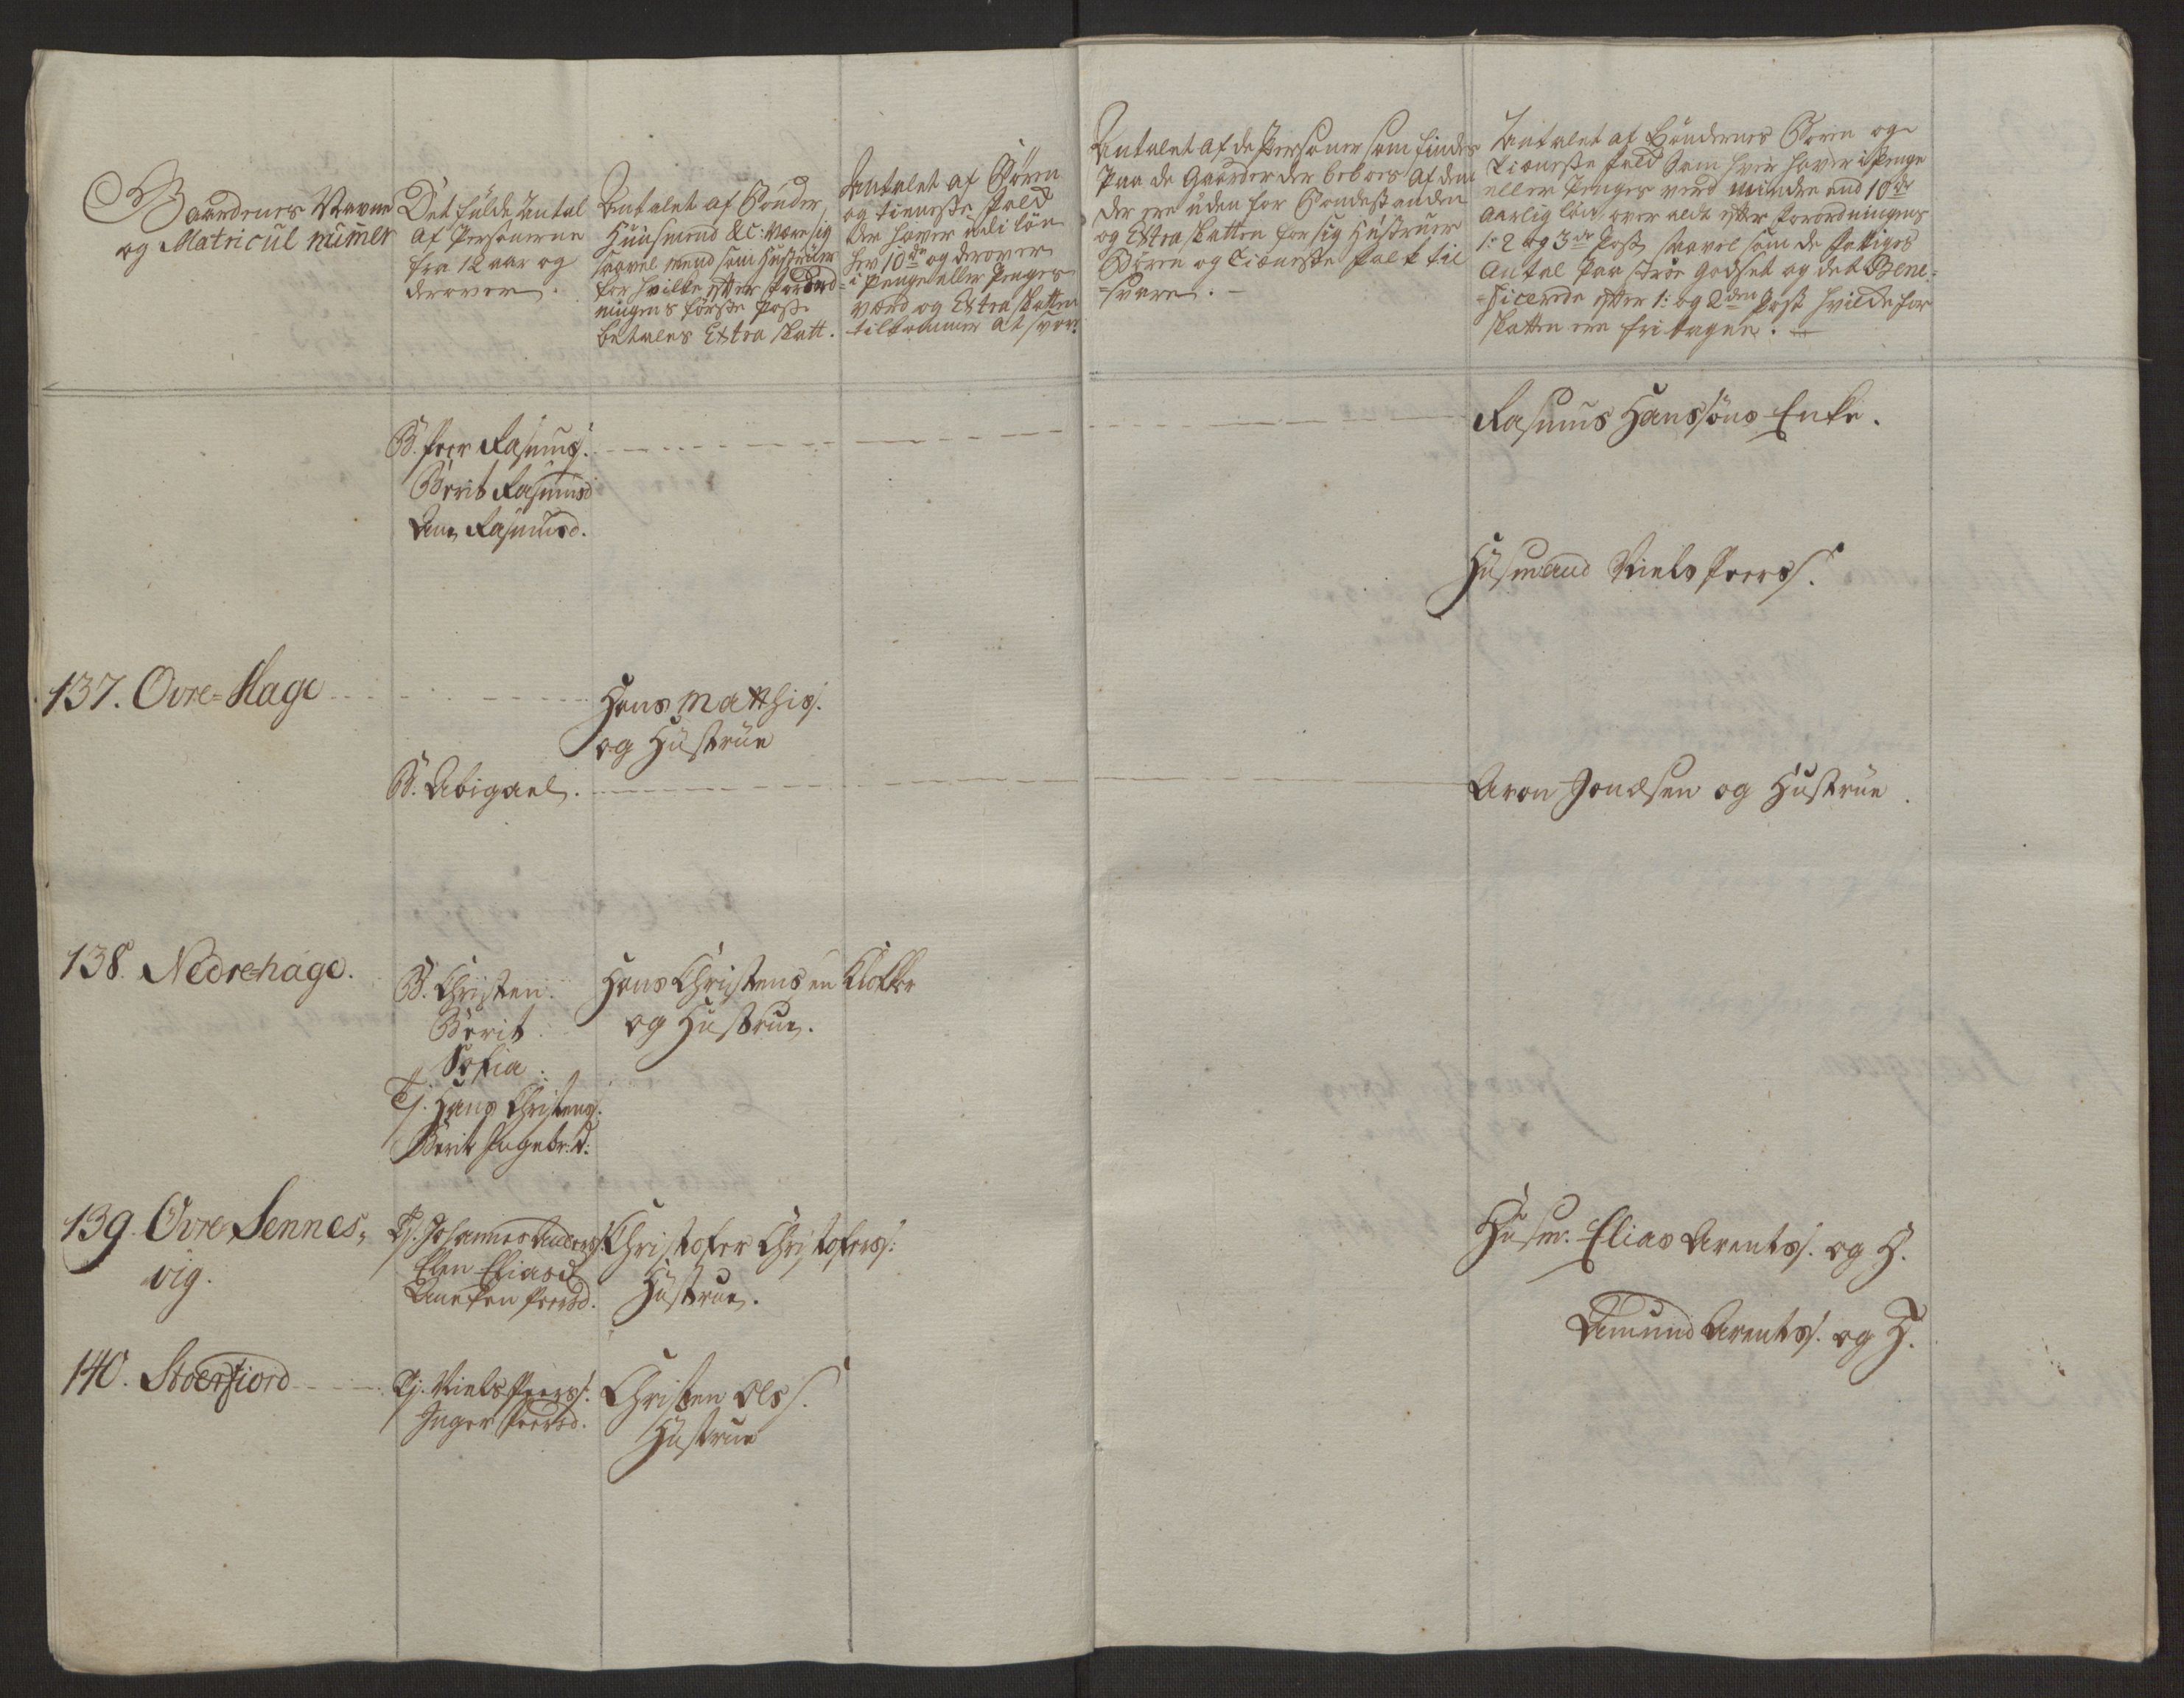 Gaardenes Navne
og Matricul numer
Det fulde Antal
af Personerne
fra 12 aar og
derover.
Antalet af Bönder,
Huusmend &c: være sig
saavel mend som Hustruer
for hvilke efter Forord-
ningens förste Post
betales Extra skatt.
Antalet af Börn
og tieneste Folk
der haver udi lön
hver 10 dr og derover
i Penge eller Penges
værd og Extra skatten
tilkommer at svare
Antalet af de Personer som findes
paa de Gaarder der beboes af dem
der ere uden for Bondestanden
og Extra skatten for sig Hustruer
Börn og Tieneste folk til-
svare.
Antalet af Böndernes Börn og
Tieneste folk som hver haver i Penge
eller Penges værd mindre end 10 dr
Aarlig lön, over alt efter Forordningens
1. 2 og 3de Post, saavel som de fattiges
Antal paa Strøe Godset og det Bene-
ficerede efter 1: og 2den Post hvilke for
skatten ere fritagne.
B. Peer Rasmus.
Berit Rasmusd
Ane Rasmusd.
Rasmus Hanssöns Enke.
Husmand Niels Peers.
137. Ovre-Hage
Hans Matthis.
og Hustrue
B. Abigael.
Aron Jonæsen og Hustrue.
138. Nedre-hage.
B. Christen.
Berit
Sofia.
Tj. Hans Christens.
Berit Ingebr:d:
Hans Christensen Klokker
og Hustrue.
139. Ovre Sennes-
vig.
Tj. Johannes Anders.
Elen Eliasd
Aneken Peersd.
Christofer Christofers:
Hustrue.
Husm. Elias Arents. og H.
Amund Arents. og H.
140. Stoerfiord
Tj. Niels Peers.
Inger Peersd.
Christen Ols.
Hustrue